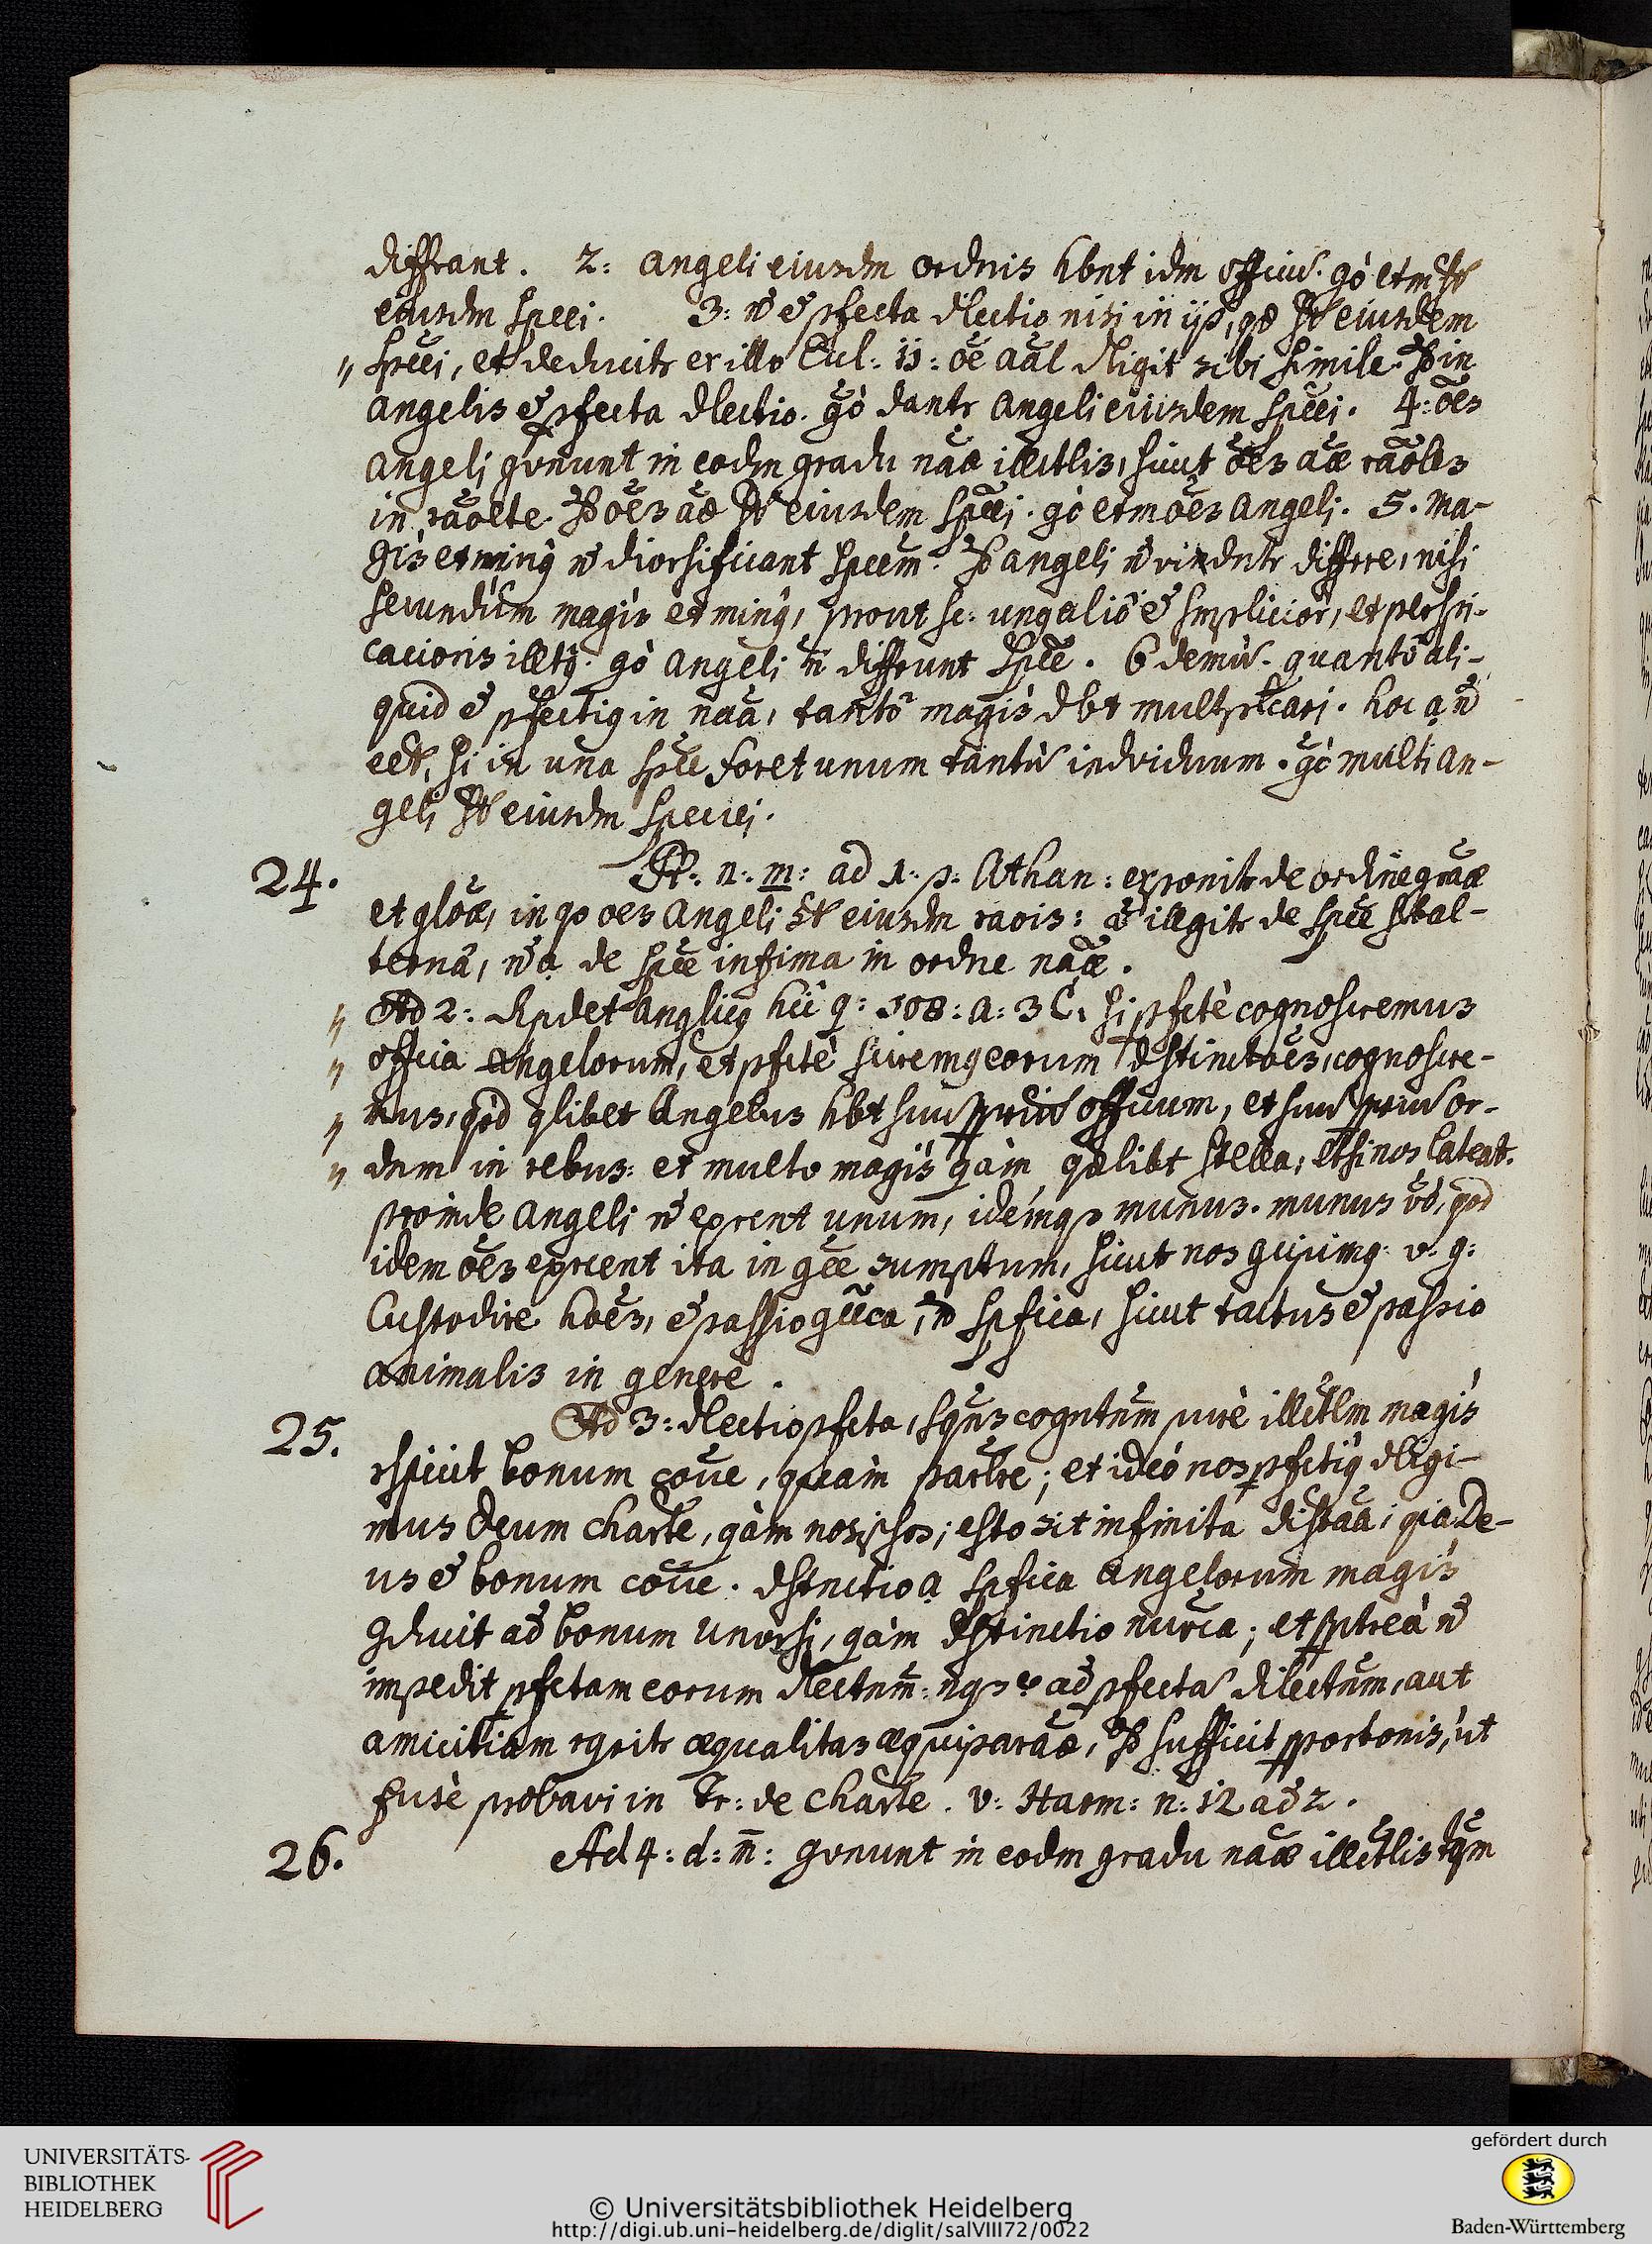 diffrant. 2: Angeli eiusdm ordnis hbnt idm officiũ. gò etm st̃
eiusdm speei. 3: ñ ẽ pfecta dlectio nisi in ijs, qd st̃ eiusdem
" speei, et deducitr ex illo Eccl: 13: oẽ aãl dligit sibi simile. Sd in
Angelis ẽ pfecta dlectio. gò dantr Angeli eiusdem speei. 4: oẽs
Angelj gvnunt in eodm gradu naæ̃ illctlis, sicut oẽs aæ̃ raõles
in raõlte. Sd oẽs aæ̃ st̃ eiusdem speej. gò etm oẽs Angelj. 5. Ma-
gis et min9 ñ diversificant speem. Sd angelj ñ vidntr differre, nisi
secundùm magis et min9, prout sc: un9 aliõ ẽ simplicior, et perspi-
cacioris illct9. gò Angeli ñ diffrunt speẽ. 6 demũ. quantò ali-
quid ẽ pfecti9 in naã, tantò magis dbt multplicarj. hoc a ñ
eẽt, si in una speẽ foret unum tantũ indviduum. gò multi An-
gelj st̃ eiusdm speciej.
24. R. n. m: ad 1. p. Athan: exponitr de ordine graæ̃
et gloæ̃, in qo oẽs Angelj st̃ eiusdm raõis: illgitr de speẽ sbal-
ternâ, ñ a de speẽ infima in ordne naæ̃.
" Ad 2: Rpdet Anglic9 hîc q: 108: a: 3 C. si pfctè cognosceremus
" officia Angelorum, et pfctè sciremus eorum dstinctoẽs, cognosce-
" mus, qòd qlibet Angelus hbt suũ ppriũ officium, et suũ ppriũ or-
" dnem in rebus: et multo magis qàm qælibt stella, etsi nos lateat.
proinde Angeli ñ exrcent unum, idemq3 munus. munus vò, qod
idem oẽs exrcent ita in geẽ sumptum, sicut nos gcipim9. v. g:
Custodire hoẽs, ẽ passio geẽca, ñ spfica, sicut tactus ẽ passio
animalis in genere.
25. Ad 3: dlectio pfcta, sq̃ns cogntnẽm purè illctlm magis
rspicit bonum coũe, quàm partlre; et ideò nos pfcti9 dligi-
mus Deum charte, qàm nosipsos; esto sit infinita distaã; qia De-
us ẽ bonum coũe. dstnctio a spfica Angelorum magis
gducit ad bonum unvrsi, qàm dstinctio numrca; et pptreà ñ
impedit pfctam eorum dlectnẽm: nq3 ad pfectã dilectnẽm, aut
amicitiam rqritr æqualitas æquiparaæ̃, sd sufficit pportonis, ut
fusè probavi in Tr: de charte. v: Harm: n: 12 ad 2.
26. Ad 4: d: m̃: gvnunt in eodm gradu naæ̃ illctlis tqm
UNIVERSITÄTS-
BIBLIOTHEK
HEIDELBERG
© Universitätsbibliothek Heidelberg
http://digi.ub.uni-heidelberg.de/diglit/salVIII72/0022
gefördert durch
Baden-Württemberg